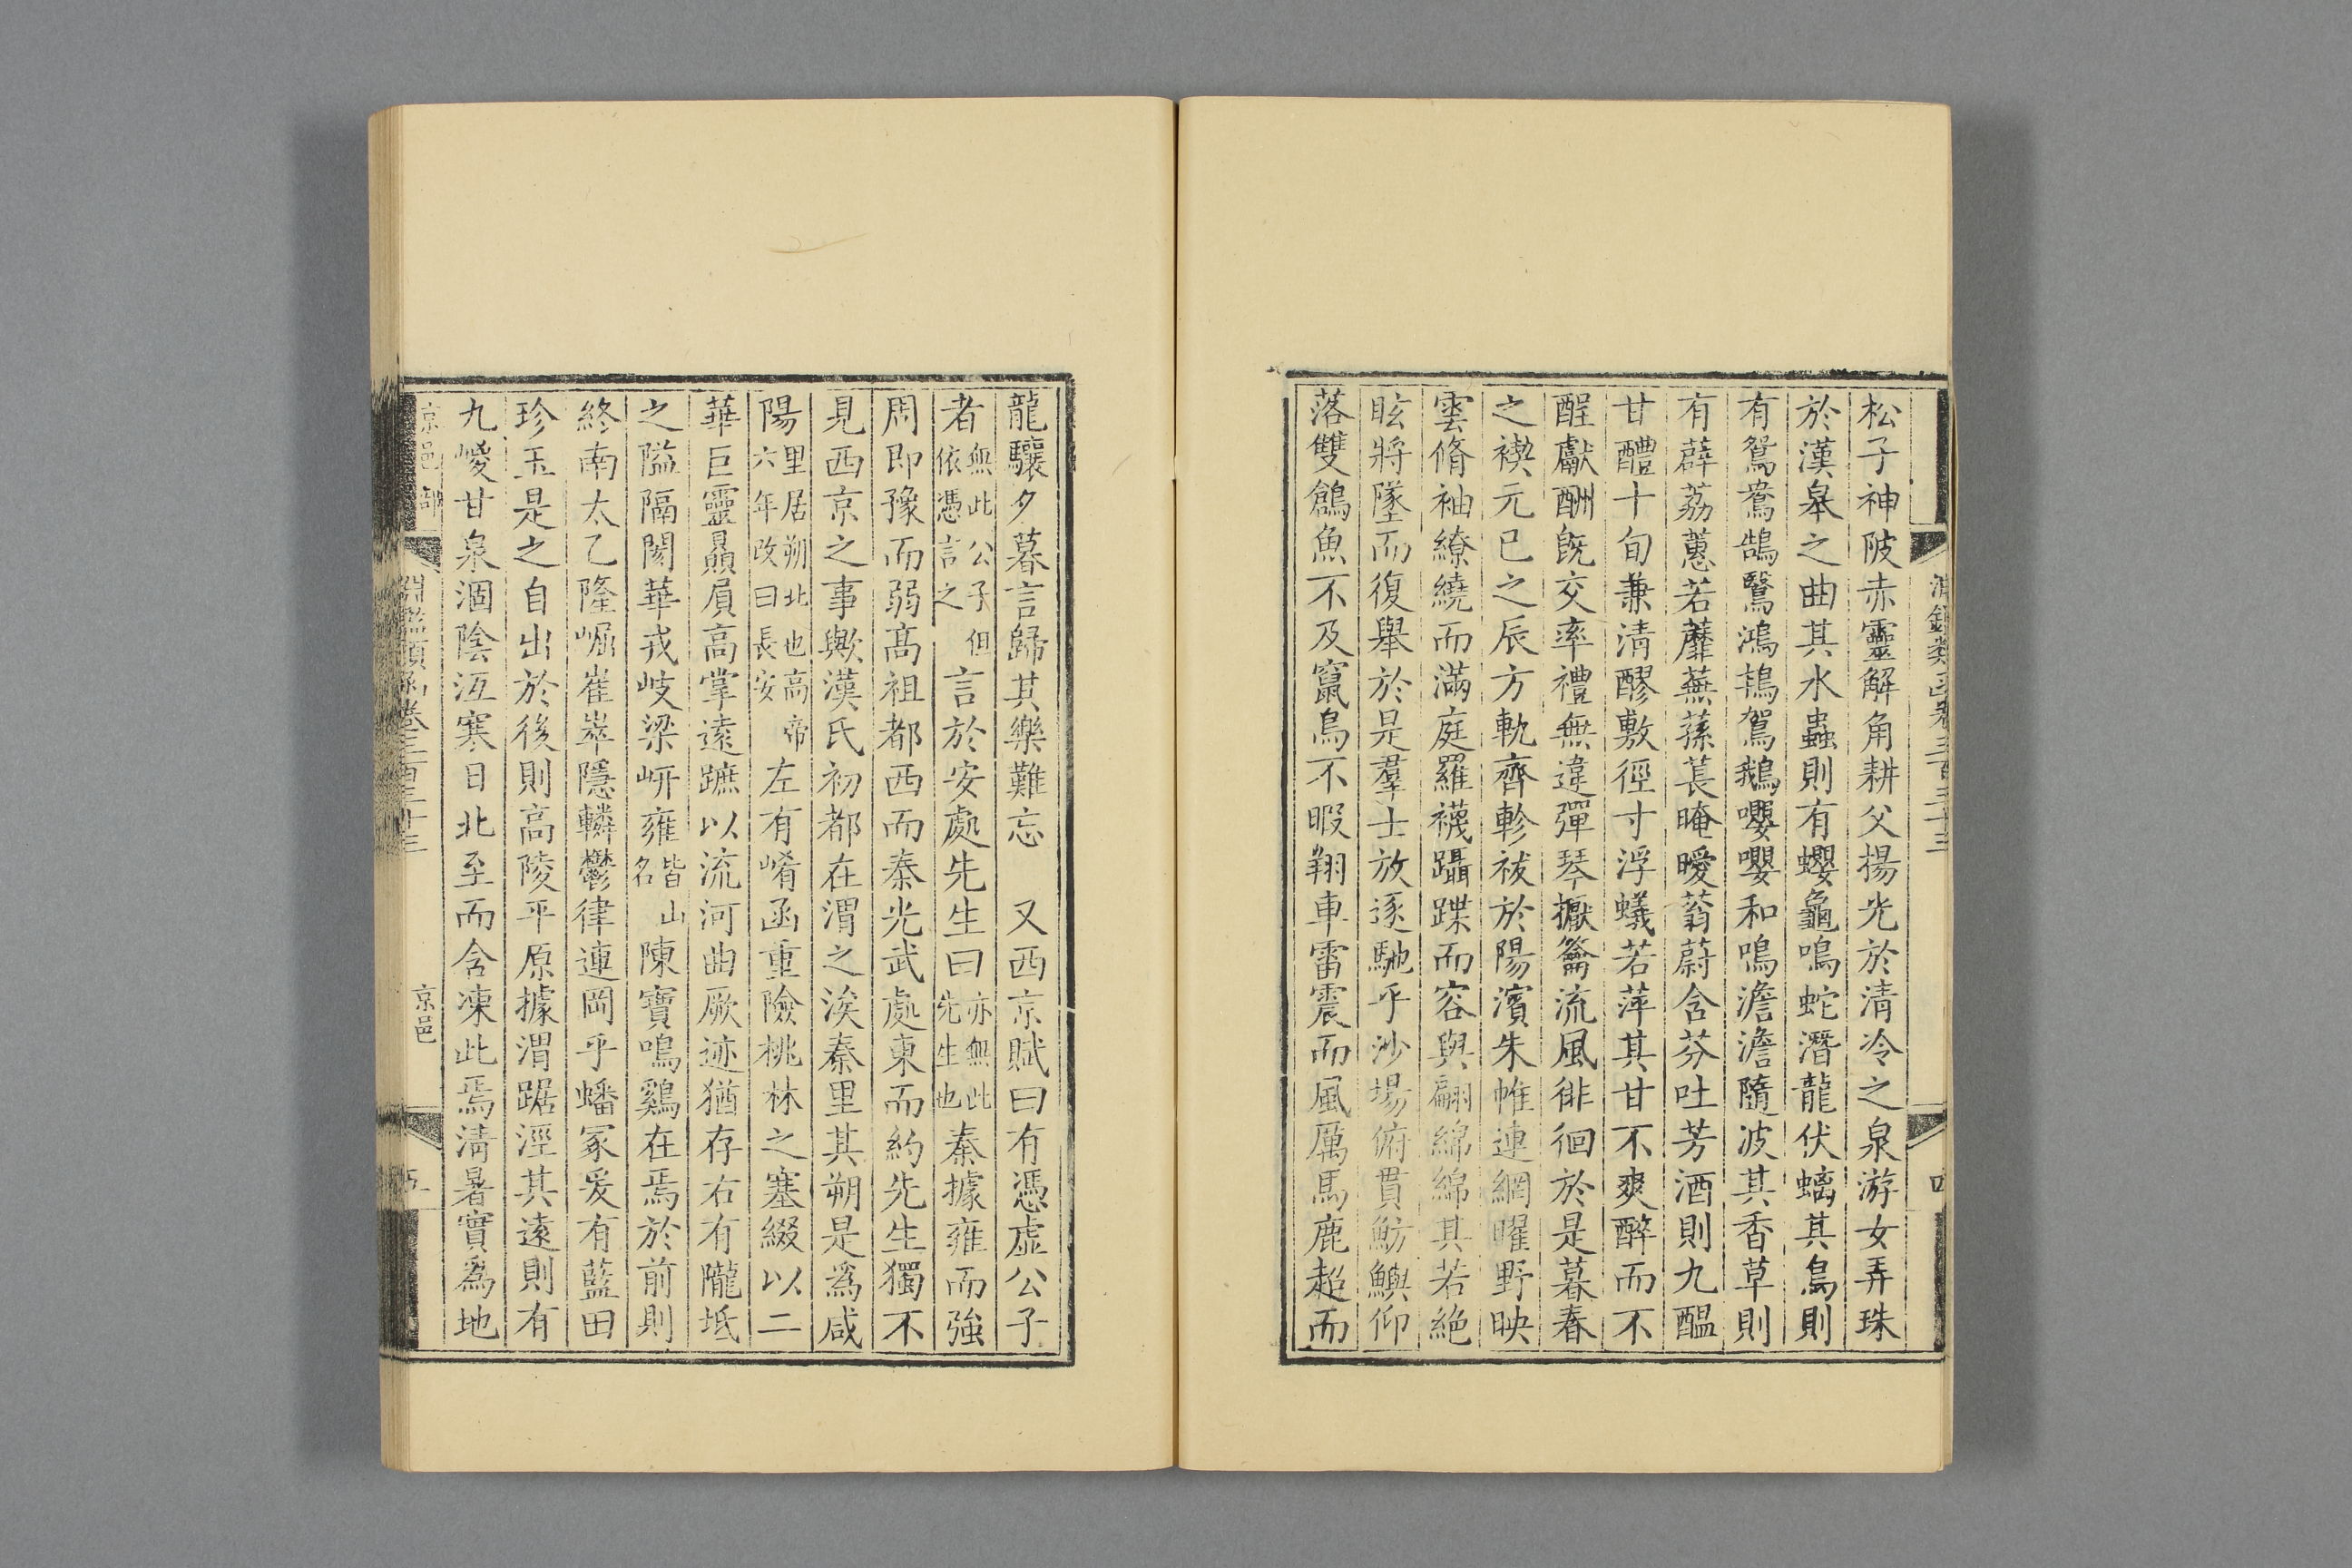 松子神陂赤靈解角耕父揚光於清冷之泉游女弄珠
於漢皋之曲其水蟲則有蠳龜鳴蛇潛龍伏螭其鳥則
有鴛鴦鵠鷖鴻鴇駕鵝嚶嚶和鳴澹澹隨波其香草則
有薜荔蕙若蘼蕪蓀萇晻曖蓊蔚含芬吐芳酒則九醖
甘醴十旬兼清醪敷徑寸浮蟻若萍其甘不爽醉而不
酲獻酬旣交率禮無違彈琴擫籥流風徘徊於是暮春
之禊元巳之辰方軌齊軫祓於陽濱朱帷連網曜野映
雲脩袖繚繞而滿庭羅襪躡蹀而容與翩綿綿其若絕
眩將墜而復舉於是羣士放逐馳乎沙場俯貫魴鱮仰
落雙鶬魚不及竄鳥不暇翔車雷震而風厲馬鹿超而
龍驤夕暮言歸其樂難忘　又西京賦曰有憑虛公子
者無此公子但依憑言之言於安處先生曰亦無此先生也秦據雍而強
周即豫而弱高祖都西而秦光武處東而約先生獨不
見西京之事歟漢氏初都在渭之涘秦里其朔是爲咸
陽里居朔北也高帝六年改曰長安左有崤函重險桃林之塞綴以二
華巨靈贔屓高掌遠蹠以流河曲厥迹猶存右有隴坻
之隘隔閡華戎岐梁岍雍皆山名陳寶鳴鷄在焉於前則
終南太乙隆崛崔崒隱轔鬱律連岡乎嶓冢爰有藍田
珍玉是之自出於後則高陵平原據渭踞涇其遠則有
九嵕甘泉涸陰沍寒日北至而含凍此焉淸暑實爲地
京邑部　淵鑑類函卷三百三十三　京邑　五